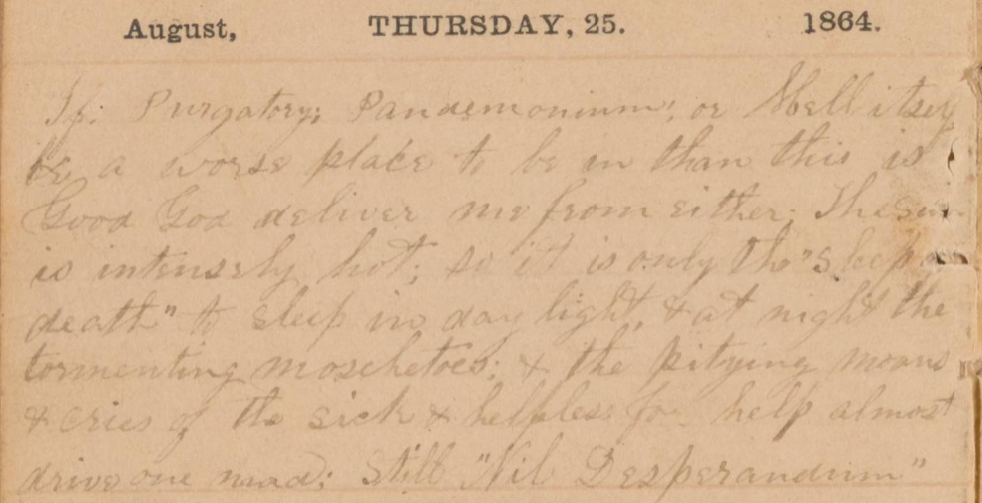 August, THURSDAY, 25. 1864.
If; Purgatory; Pandemonium; or Hell itself
be a worse place to be in than this is
Good God deliver me from either. The sun
is intensely hot; so it is only the "sleep of
death" to sleep in day light, & at night the
tormenting moschetoes; & the pitying moans
& cries of the sick & helpless for help almost
drive one mad; Still "Nil Desperandum"